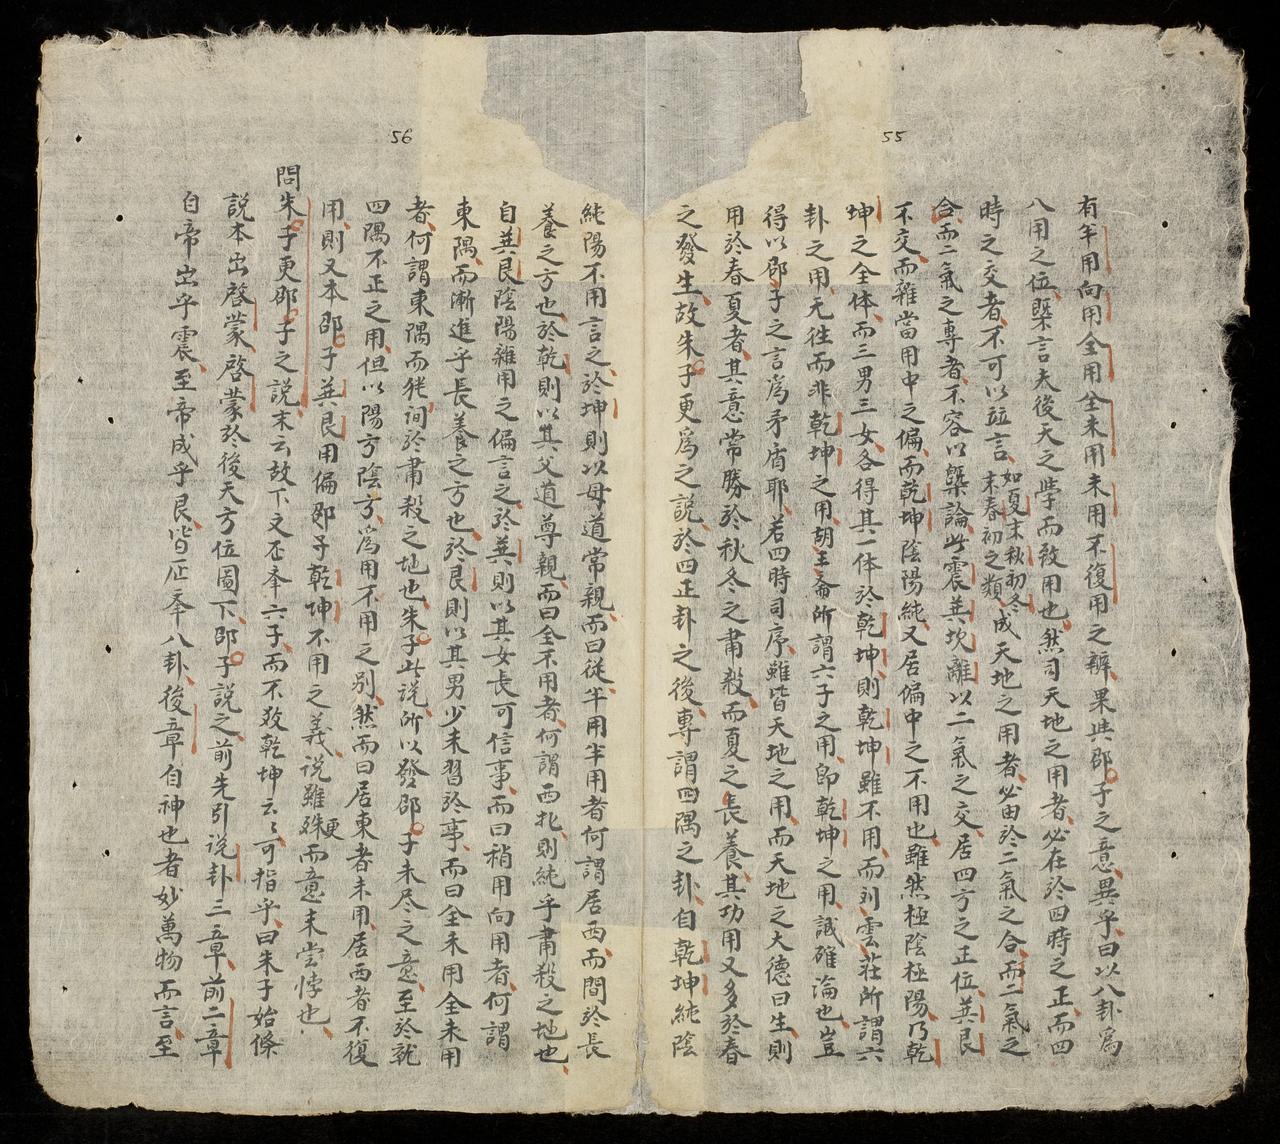 55
有半用向用全用全未用未用不復用之辨果與邵子之意異乎曰以八卦爲
八用之位槩言夫後天之學而致用也然司天地之用者必在於四時之正而四
時之交者不可以竝言如夏末秋初冬末春初之類成天地之用者必由於二氣之合而二氣之
合而二氣之專者不容以槩論此震兊坎離以二氣之交居四方之正位兊艮
不交而雜當用中之偏而乾坤陰陽純又居偏中之不用也雖然極陰極陽乃乾
坤之全体而三男三女各得其一体於乾坤則乾坤雖不用而刘雲莊所謂六
卦之用无徃而非乾坤之用胡玉斋所謂六子之用卽乾坤之用誠確論也豈
得以邵子之言爲矛盾耶若四時司序雖皆天地之用而天地之大德曰生則
用於春夏者其意常勝於秋冬之肅殺而夏之長養其功用又多於春
之發生故朱子更爲之說於四正卦之後專謂四隅之卦自乾坤純陰
56
純陽不用言之於坤則以母道常親而曰従半用半用者何謂居西而間於長
養之方也於乾則以其父道尊親而曰全不用者何謂西北則純乎肅殺之地也
自巽艮陰陽雜用之偏言之於巽則以其女長可信事而曰稍用向用者何謂
東隅而漸進乎長養之方也於艮則以其男少未習於事而曰全未用全未用
者何謂東隅而犹间於肅殺之地也朱子此说所以發邵子未尽之意至於就
四隅不正之用但以陽方陰方爲用不用之别然而曰居東者未用居西者不復
用則又本邵子巽艮用偏邵子乾坤不用之義说雖殊更而意未嘗悖也
問朱子更邵子之説末云故下文丕夲六子而不数乾坤云云可指乎曰朱子始條
説本出啓蒙啓蒙於後天方位圖下邵子説之前先引说卦二章前二章
自帝出乎震至帝成乎艮皆厎夲八卦後章自神也者妙萬物而言至